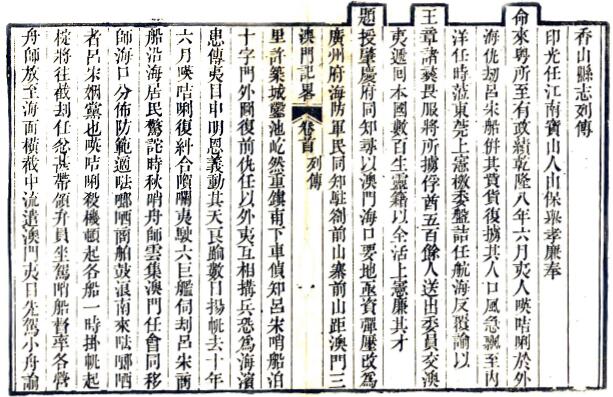 香山縣志列傳
印光任江南寶山人由保舉孝廉奉
命來粤所至有政績乾隆八年六月夷人暎咭唎於外
海仇刼呂宋船併其貲貨復擄其人口風急飄至内
洋任時蒞東莞上憲檄委盤詰任航海反覆諭以
王章諸彝畏服將所擄俘酋五百餘人送出委員交澳
夷遞囘本國數百生靈藉以全活上憲廉其才
題授肇慶府同知尋以澳門海口要地亟資彈壓改為
廣州府海防軍民同知駐劄前山寨前山距澳門三
澳門記畧 卷首 列傳
里許築城鑿池屹然重鎮甫下車偵知呂宋哨船泊
十字門外圖復前仇任以外夷互相搆兵恐為海濱
患傳夷目申明恩義動其天良踰數日揚帆去十年
六月暎咭唎復糾合囒夷駛六巨艦伺刼呂宋商
船沿海居民驚詫時秋哨舟師雲集澳門任會同移
師海口分佈防範適哂商船鼓浪南來哂
者呂宋姻黨也暎咭唎殺機頓起各船一時掛帆起
椗將往截刼任忿甚帶領弁員坐駕哨船督率各營
舟師放至海面橫截中流遣澳門夷目先駕小舟諭